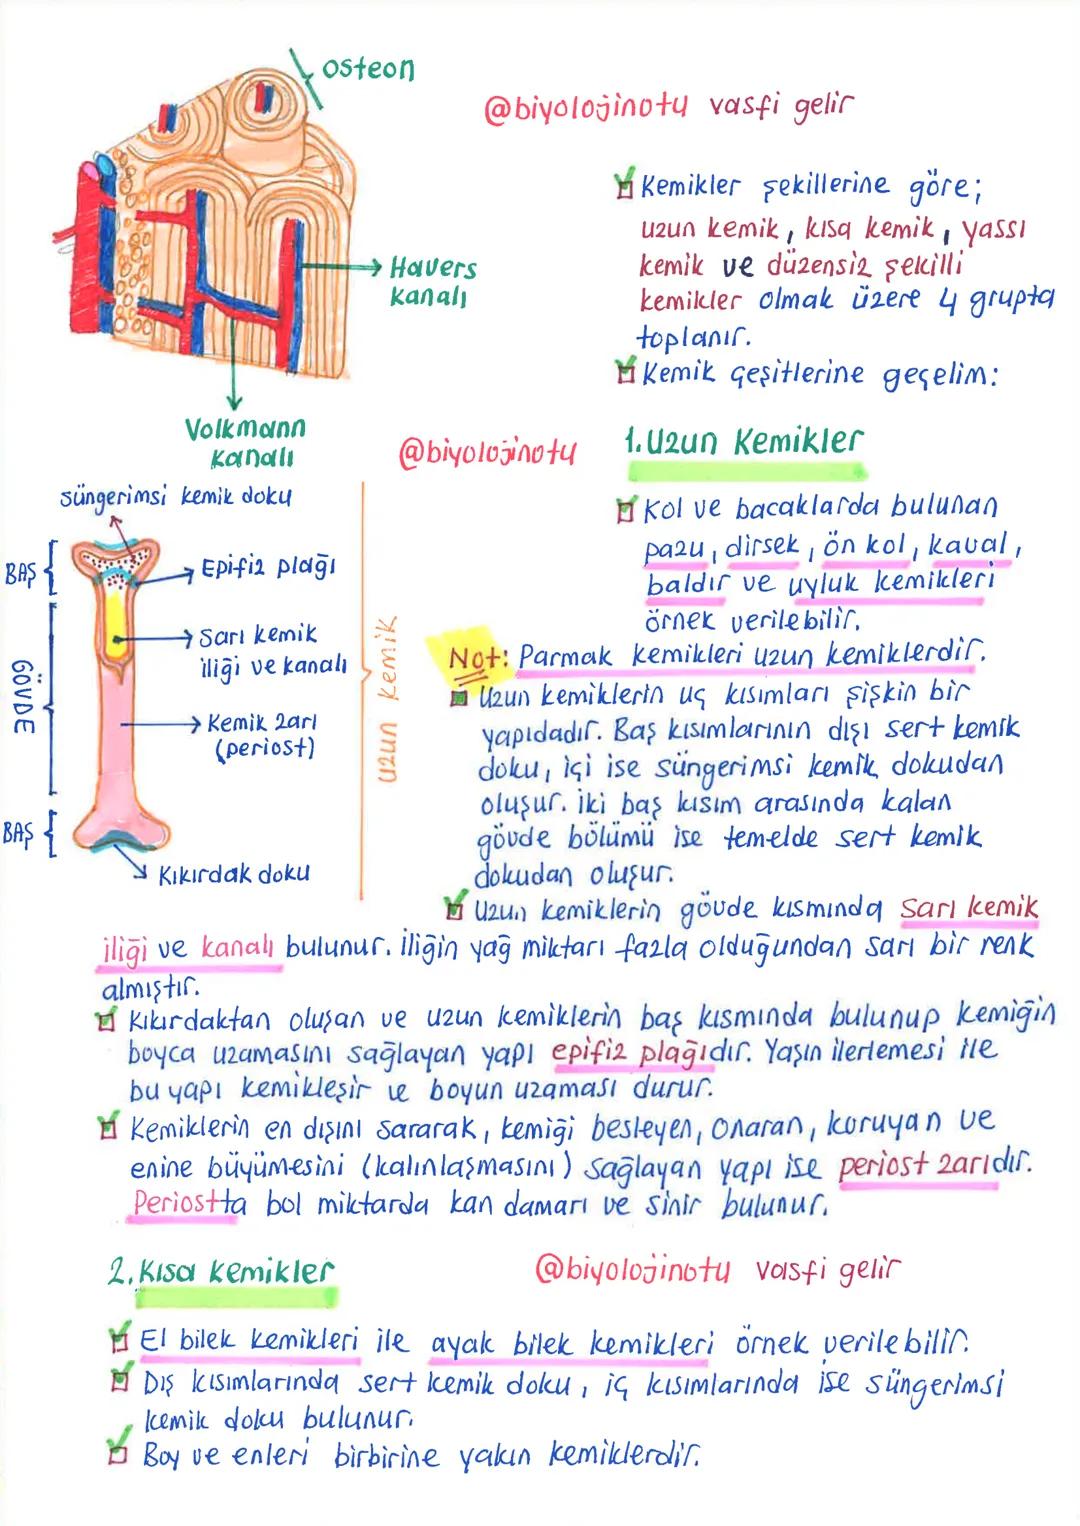 osteon
@biyolojinotu vasfi gelir
Kemikler şekillerine göre;
uzun kemik, kısa kemik, yassı
kemik ve düzensiz şekilli
kemikler olmak üzere 4 grupta
toplanır.
Kemik çeşitlerine geçelim:
Havers
kanalı
Volkmann
kanalı
@biyolojinotu
1.Uzun Kemikler
Kol ve bacaklarda bulunan
pazu, dirsek, ön kol, kaval,
baldır ve uyluk kemikleri
örnek verilebilir.
süngerimsi kemik doku
BAŞ
Epifiz plağı
Sarı kemik
iliği ve kanalı
GÖVDE
Kemik zarı
(periost)
BAŞ
Kıkırdak doku
Uzun kemik
Not: Parmak kemikleri uzun kemiklerdir.
Uzun kemiklerin uç kısımları şişkin bir
yapıdadır. Baş kısımlarının dışı sert kemik
doku, içi ise süngerimsi kemik dokudan
oluşur. iki baş kısım arasında kalan
gövde bölümü ise temelde sert kemik
dokudan oluşur.
Uzun kemiklerin gövde kısmında Sarı kemik
iliği ve kanalı bulunur. iliğin yağ miktarı fazla olduğundan sarı bir renk
almıştır.
Kıkırdaktan oluşan ve uzun kemiklerin baş kısmında bulunup kemiğin
boyca uzamasını sağlayan yapı epifiz plağıdır. Yaşın ilerlemesi ile
bu yapı kemikleşir ve boyun uzaması durur.
Kemiklerin en dışını sararak, kemiği besleyen, onaran, koruyan ve
enine büyümesini (kalınlaşmasını) sağlayan yapı ise periost zarıdır.
Periostta bol miktarda kan damarı ve sinir bulunur.
2.Kısa kemikler
@biyolojinotu vasfi gelir
El bilek kemikleri ile ayak bilek kemikleri örnek verilebilir.
Dış kısımlarında sert kemik doku, iç kısımlarında ise süngerimsi
kemik doku bulunur.
Boy ve enleri birbirine yakın kemiklerdir.